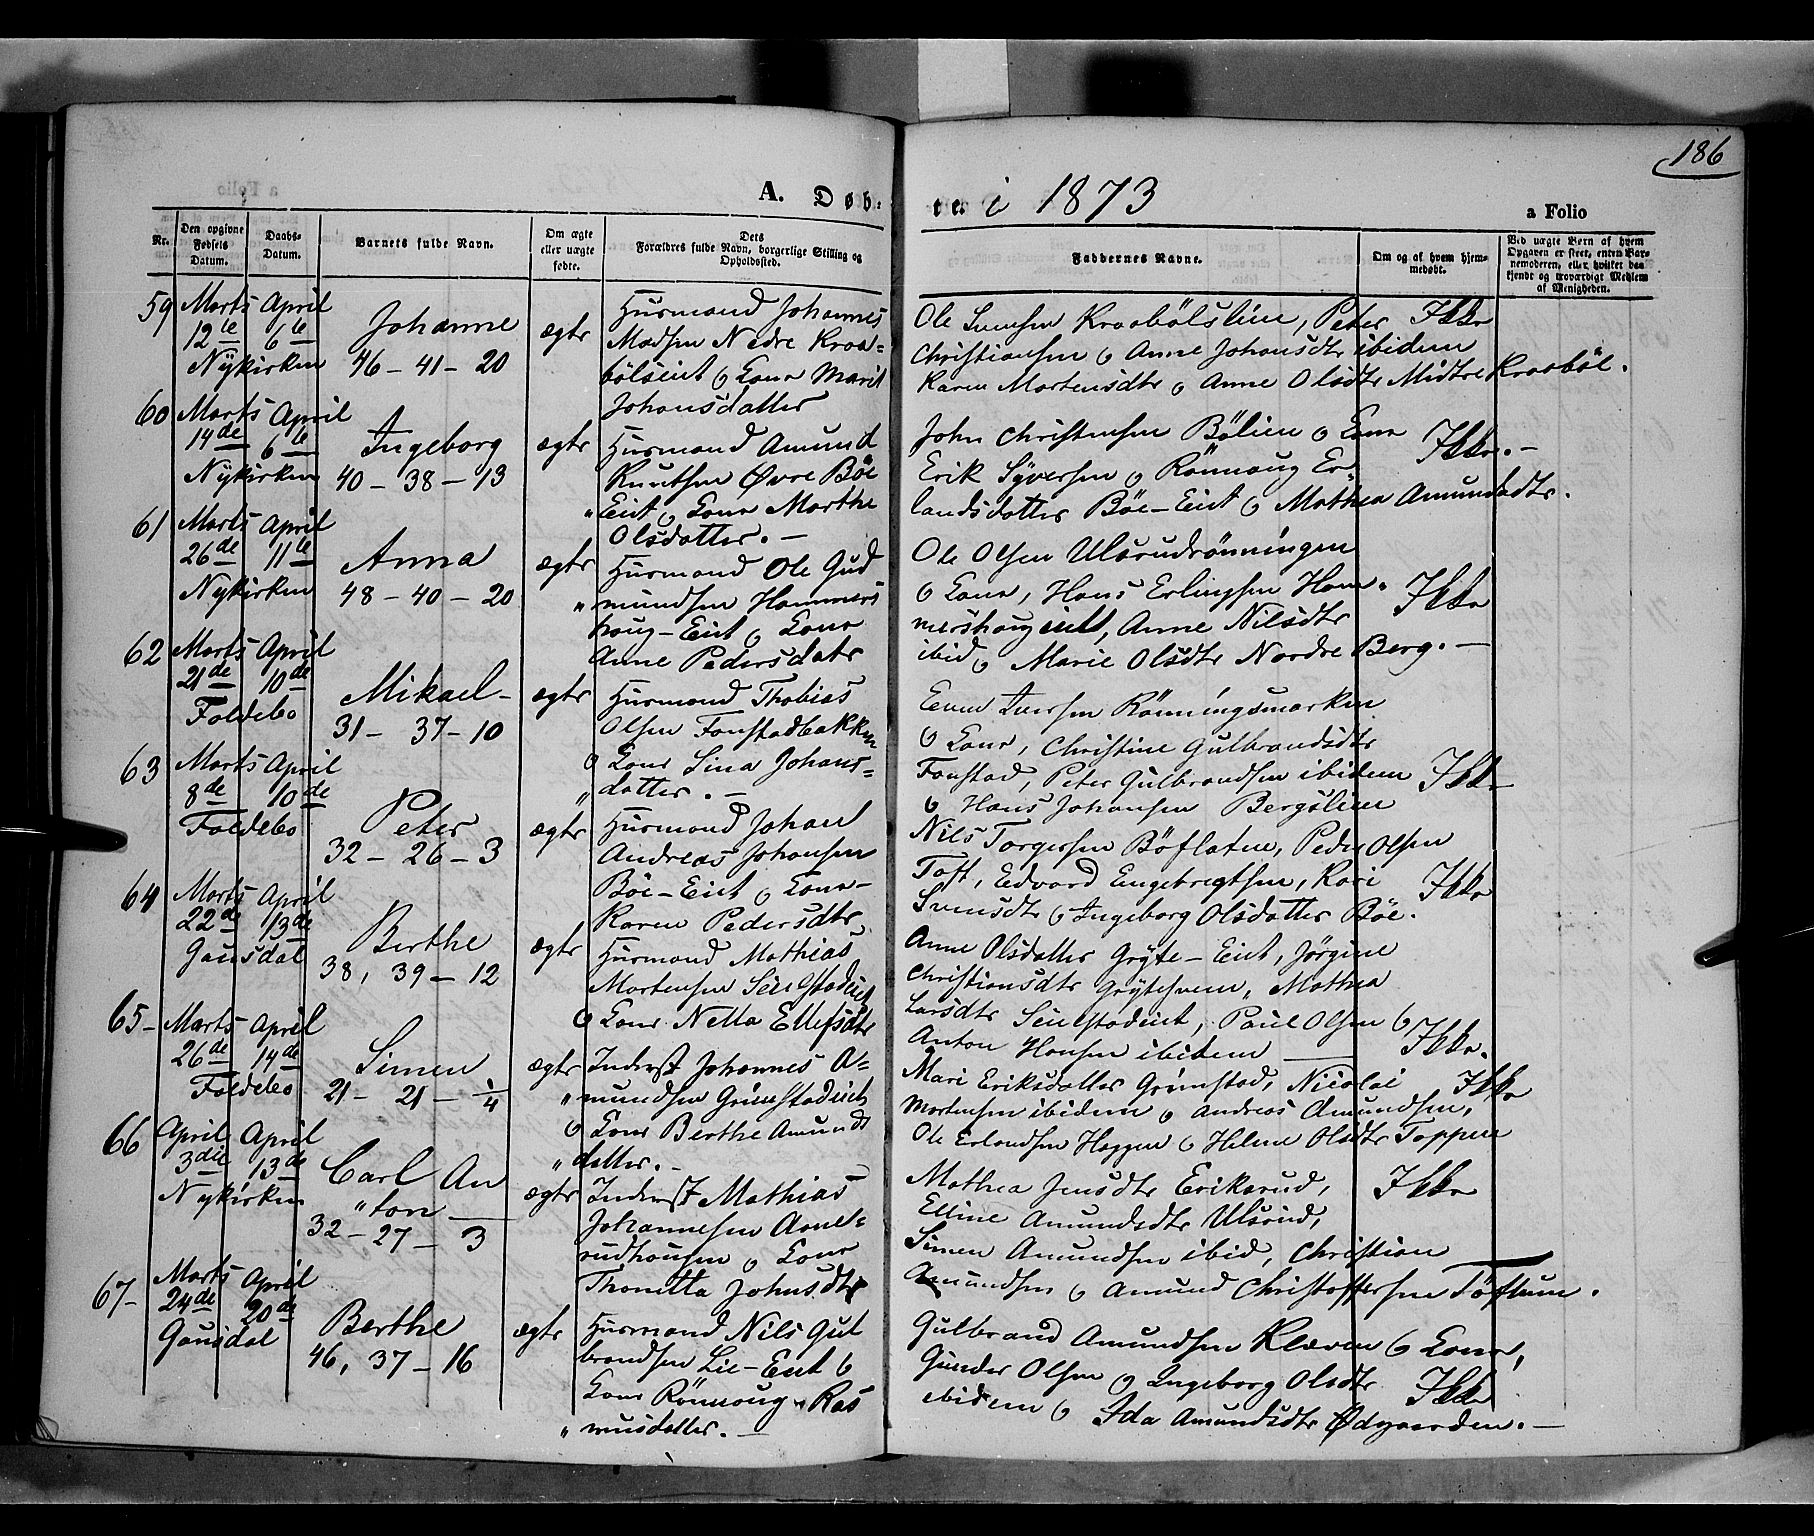 186
A. Døb-
te. i 1873
a Folio
Nr.
Den opgivne
Fødsels
Datum.
Daabs-
Datum.
Barnets fulde Navn.
Om ægte
eller uægte
fødte.
Dets
Forældres fulde Navn, borgerlige Stilling og
Opholdssted.
Faddernes Navne.
Om og af hvem hjem-
medøbt.
Ved uægte Børn af hvem
Opgaven er skeet, enten Bar-
nemoderen, eller hvilket bekjendt og troværdigt Medlem
af Menigheden.
59 Marts 12te
April 6te
Nykirken
Johanne
46 - 41 - 20
ægte
Husmand Johannes
Madsen Nedre Kraa-
bølseiet og Kone Marit
Johansdatter
Ole Svensen Kraabølslien, Peter
Christiansen og Anne Johansdtr ibidem
Karen Mortensdtr og Anne Olsdtr Midtre Kraabøl.
Ikke
60 Marts 14de
April 6te
Nykirken
Ingeborg
40 - 38 - 13
ægte
Husmand Amund
Knutsen Øvre Böe
Eiet og Kone Marthe
Olsdatter. -
John Christensen Bölien og Kone
Erik Syversen og Rönnaug Er-
landsdatter Böe-Eiet og Mathea Amundsdtr.
Ikke. -
61 Marts 26de
April 11te
Nykirken
Anna
48 - 40 - 20
ægte
Husmand Ole Gud
" mundsen Hammers
houg-Eiet og Kone
Anne Pedersdatr
Ole Olsen Ulsrudrönningen
og Kone, Hans Erlingsen Ham-
mershougeiet, Anne Nilsdtr
ibid og Marie Olsdtr Nordre Berg. -
Ikke
62 Marts 21de
April 10de
Foldebo
Mikael -
31 - 37 - 10
ægte
Husmand Thobias
Olsen Fonstadbakken
og Kone Sina Johans-
" datter. -
Even Iversen Rönningsmarken
og Kone, Christine Gulbrandsdtr
Fonstad, Peter Gulbrandsen ibidem
og Hans Johansen Bergslien
Ikke
63 Marts 8de
April 10de
Foldebo
Peter
32 - 26 - 3
ægte
Husmand Johan
Andreas Johansen
Böe-Eiet og Kone -
Karen Pedersdtr
Nils Torgersen Böflaten, Peder Olsen
Toft, Edvard Engebregtsen, Kari
Svensdtr og Ingeborg Olsdatter Böe.
Ikke
64 Marts 22de
April 13de
Gausdal
Berthe
38, 39 - 12
ægte
Husmand Mathias
Mortensen Seielstadeiet
og Kone Netta Ellefsdtr
Anne Olsdatter Gryte-Eiet, Jörgine
Christiansdtr Grytesveen, Mathea
Larsdtr Seielstadeiet, Paul Olsen og
Anton Hansen ibidem
Ikke.
65 - Marts 26de
April 14de
Foldebo
Simen
21 - 21 - 1/4
ægte
Inderst Johannes A-
" mundsen Grimstadeiet
og Kone Berthe Amunds
" datter. -
Mari Eriksdatter Grimstad, Nicolai
Mortensen ibidem og Andreas Amundsen,
Ole Erlandsen Haggen og Helene Olsdtr Toppen
Ikke
66 April 3die
April 13de
Nykirken
Carl An
" ton
32 - 27 - 3
ægte
Inderst Mathias
Johannesen Arne-
rudhougen og Kone
Thonetta Johnsdtr
Mathea Jensdtr Eriksrud,
Elline Amundsdtr Ulsrud,
Simen Amundsen ibid, Christian
Amundsen og Amund Christoffersen Töftum.
Ikke
67 - Marts 24de
April 20de
Gausdal
Berthe
46, 37 - 16
ægte
Husmand Nils Gul
brandsen Lie-Eiet og
Kone Rönnoug Ras
" musdatter. -
Gulbrand Amundsen Kleven og Kone,
Gunder Olsen og Ingeborg Olsdtr
ibidem og Ida Amundsdtr Ødgaarden. -
Ikke